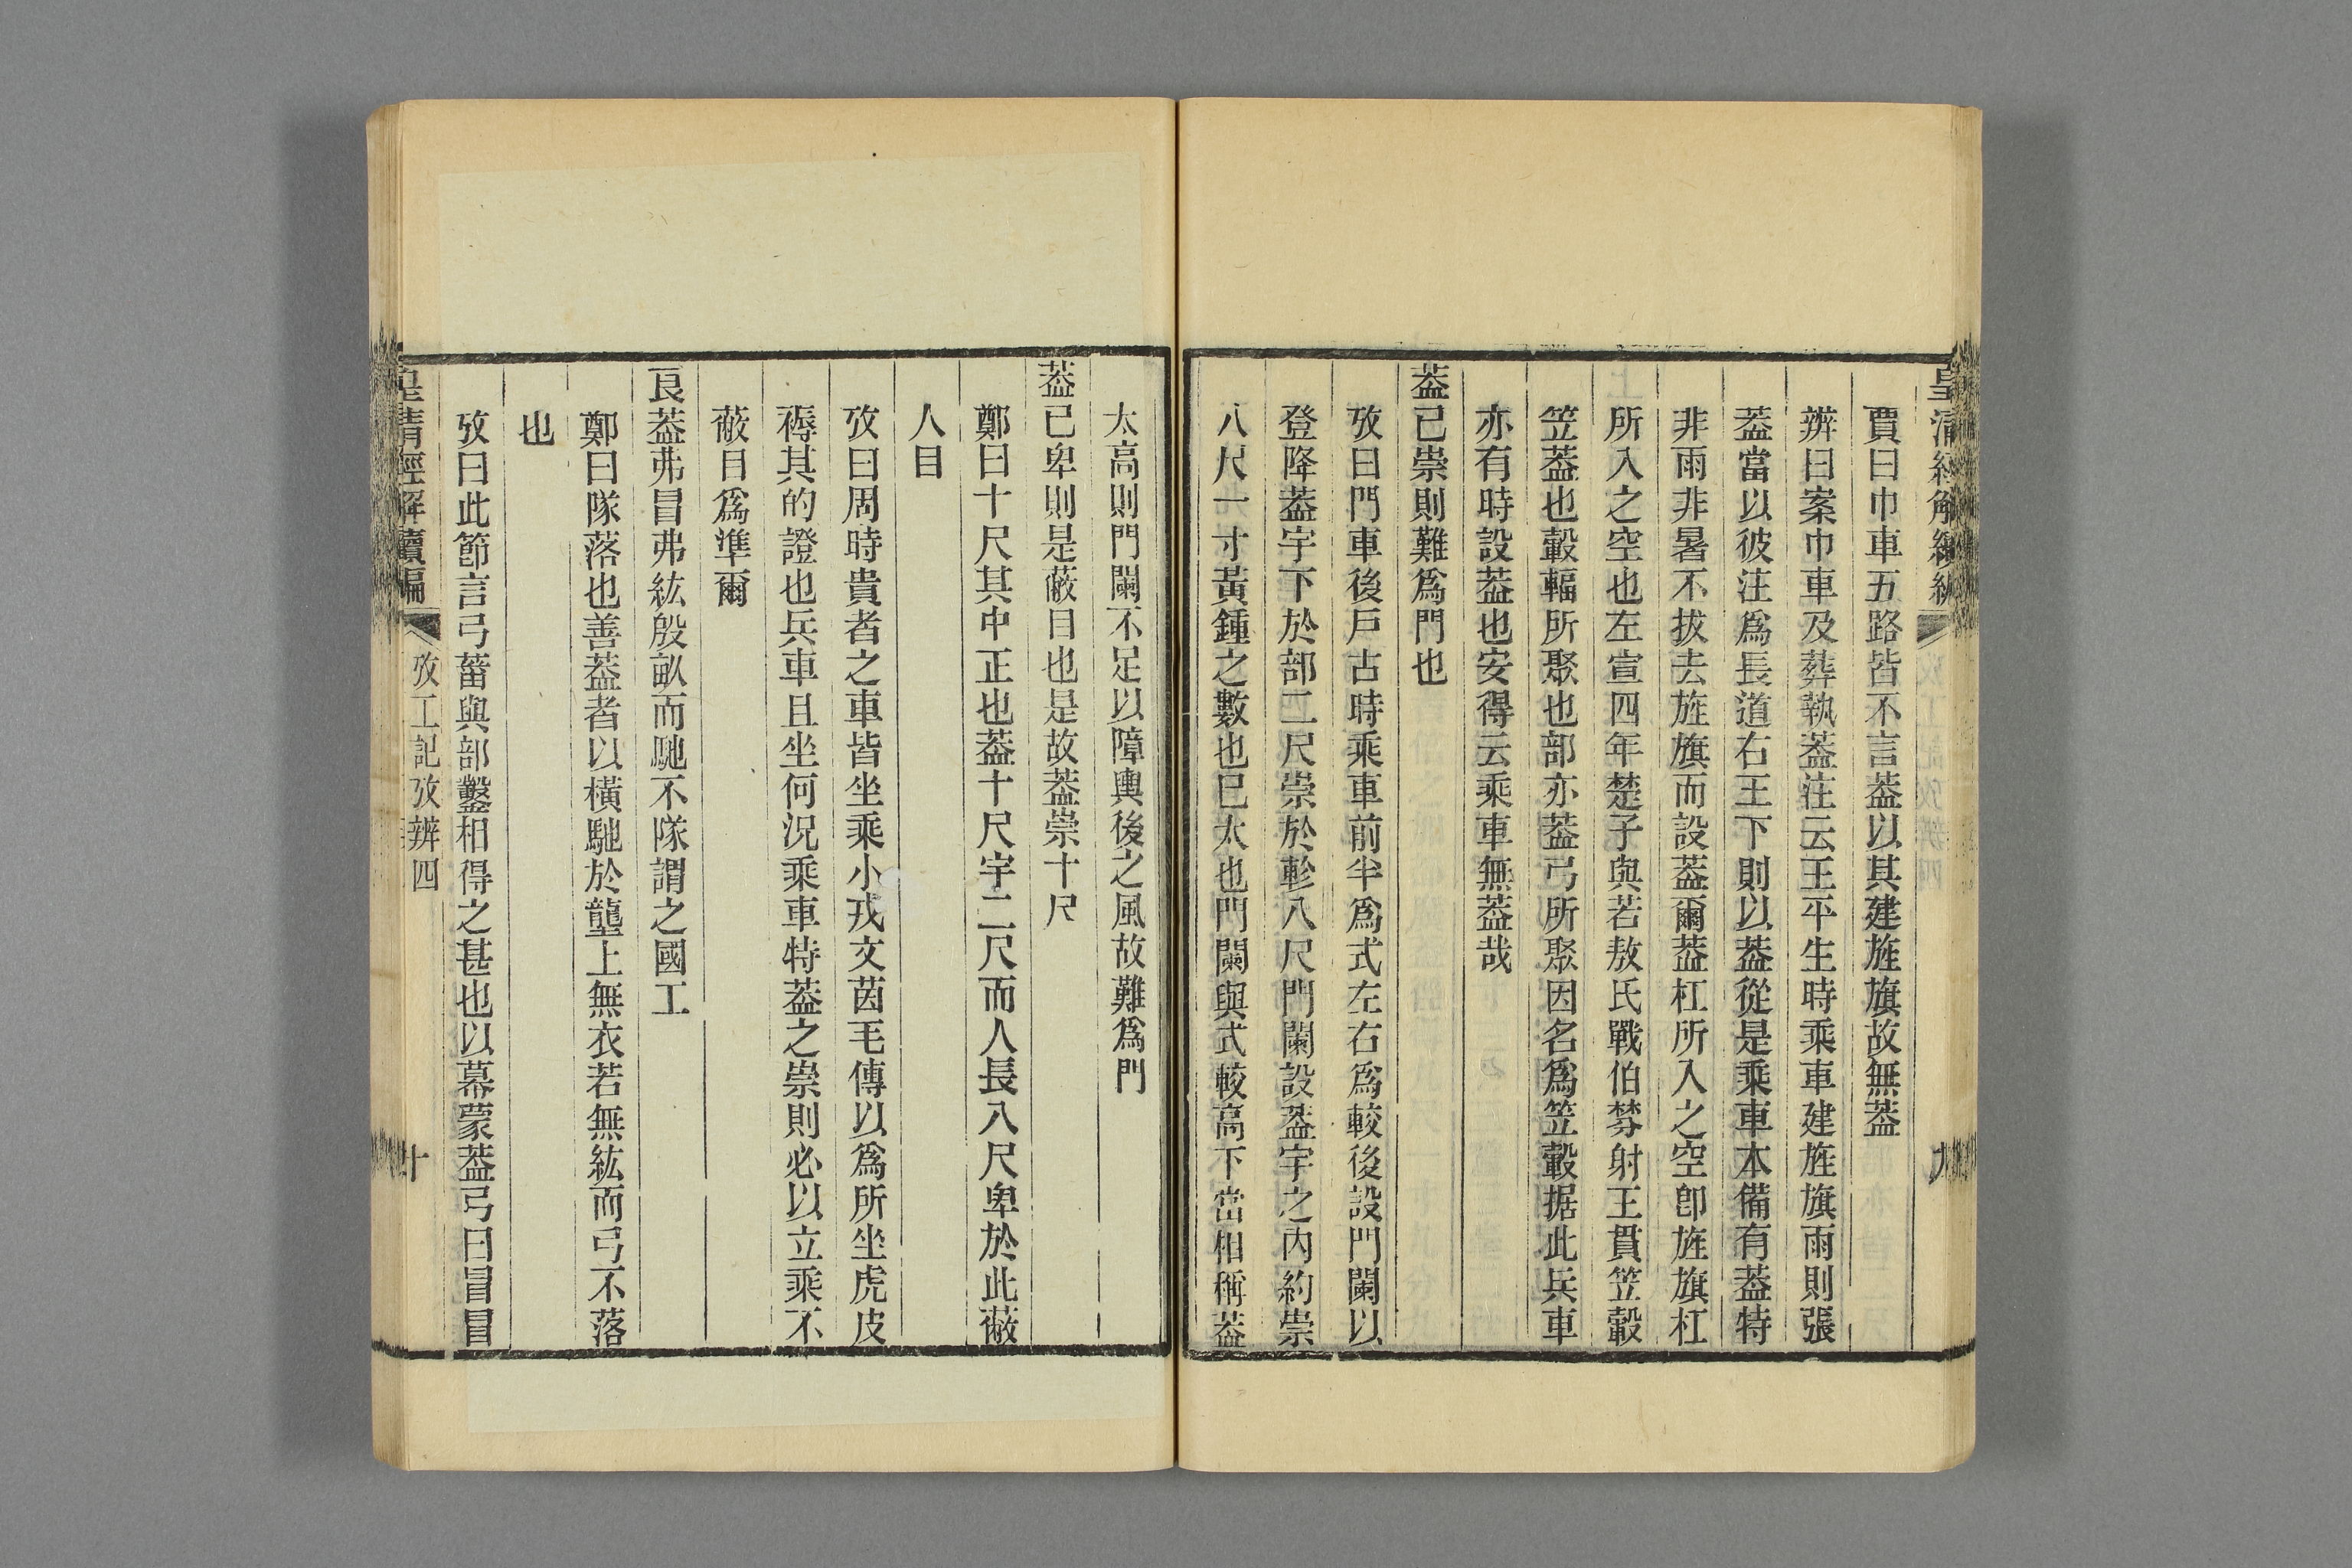 賈曰巾車五路皆不言葢以其建旌旗故無葢
辨曰案巾車及葬執葢注云王平生時乘車建旌旗雨則張
葢當以彼注爲長道右王下則以葢從是乘車本備有葢特
非雨非暑不拔去旌旗而設葢爾葢杠所入之空卽旌旗杠
所入之空也左宣四年楚子與若敖氏戰伯棼射王貫笠轂
笠葢也轂輻所聚也部亦葢弓所聚因名爲笠轂据此兵車
亦有時設葢也安得云乘車無葢哉
葢已崇則難爲門也
攷曰門車後戶古時乘車前半爲式左右爲較後設門闌以
登降葢宇下於部二尺崇於軫八尺門闌設葢宇之內約崇
八尺一寸黃鍾之數也已太也門闌與式較高下當相稱葢
太高則門闌不足以障輿後之風故難爲門
葢已卑則是蔽目也是故葢崇十尺
鄭曰十尺其中正也葢十尺宇二尺而人長八尺卑於此蔽
人目
攷曰周時貴者之車皆坐乘小戎文茵毛傳以爲所坐虎皮
褥其的證也兵車且坐何況乘車特葢之崇則必以立乘不
蔽目爲準爾
良葢弗冒弗紘殷畝而馳不隊謂之國工
鄭曰隊落也善葢者以橫馳於壟上無衣若無紘而弓不落
也
攷曰此節言弓菑與部鑿相得之甚也以幕蒙葢弓曰冒冒
皇清經解續編
攷工記攷辨四
十